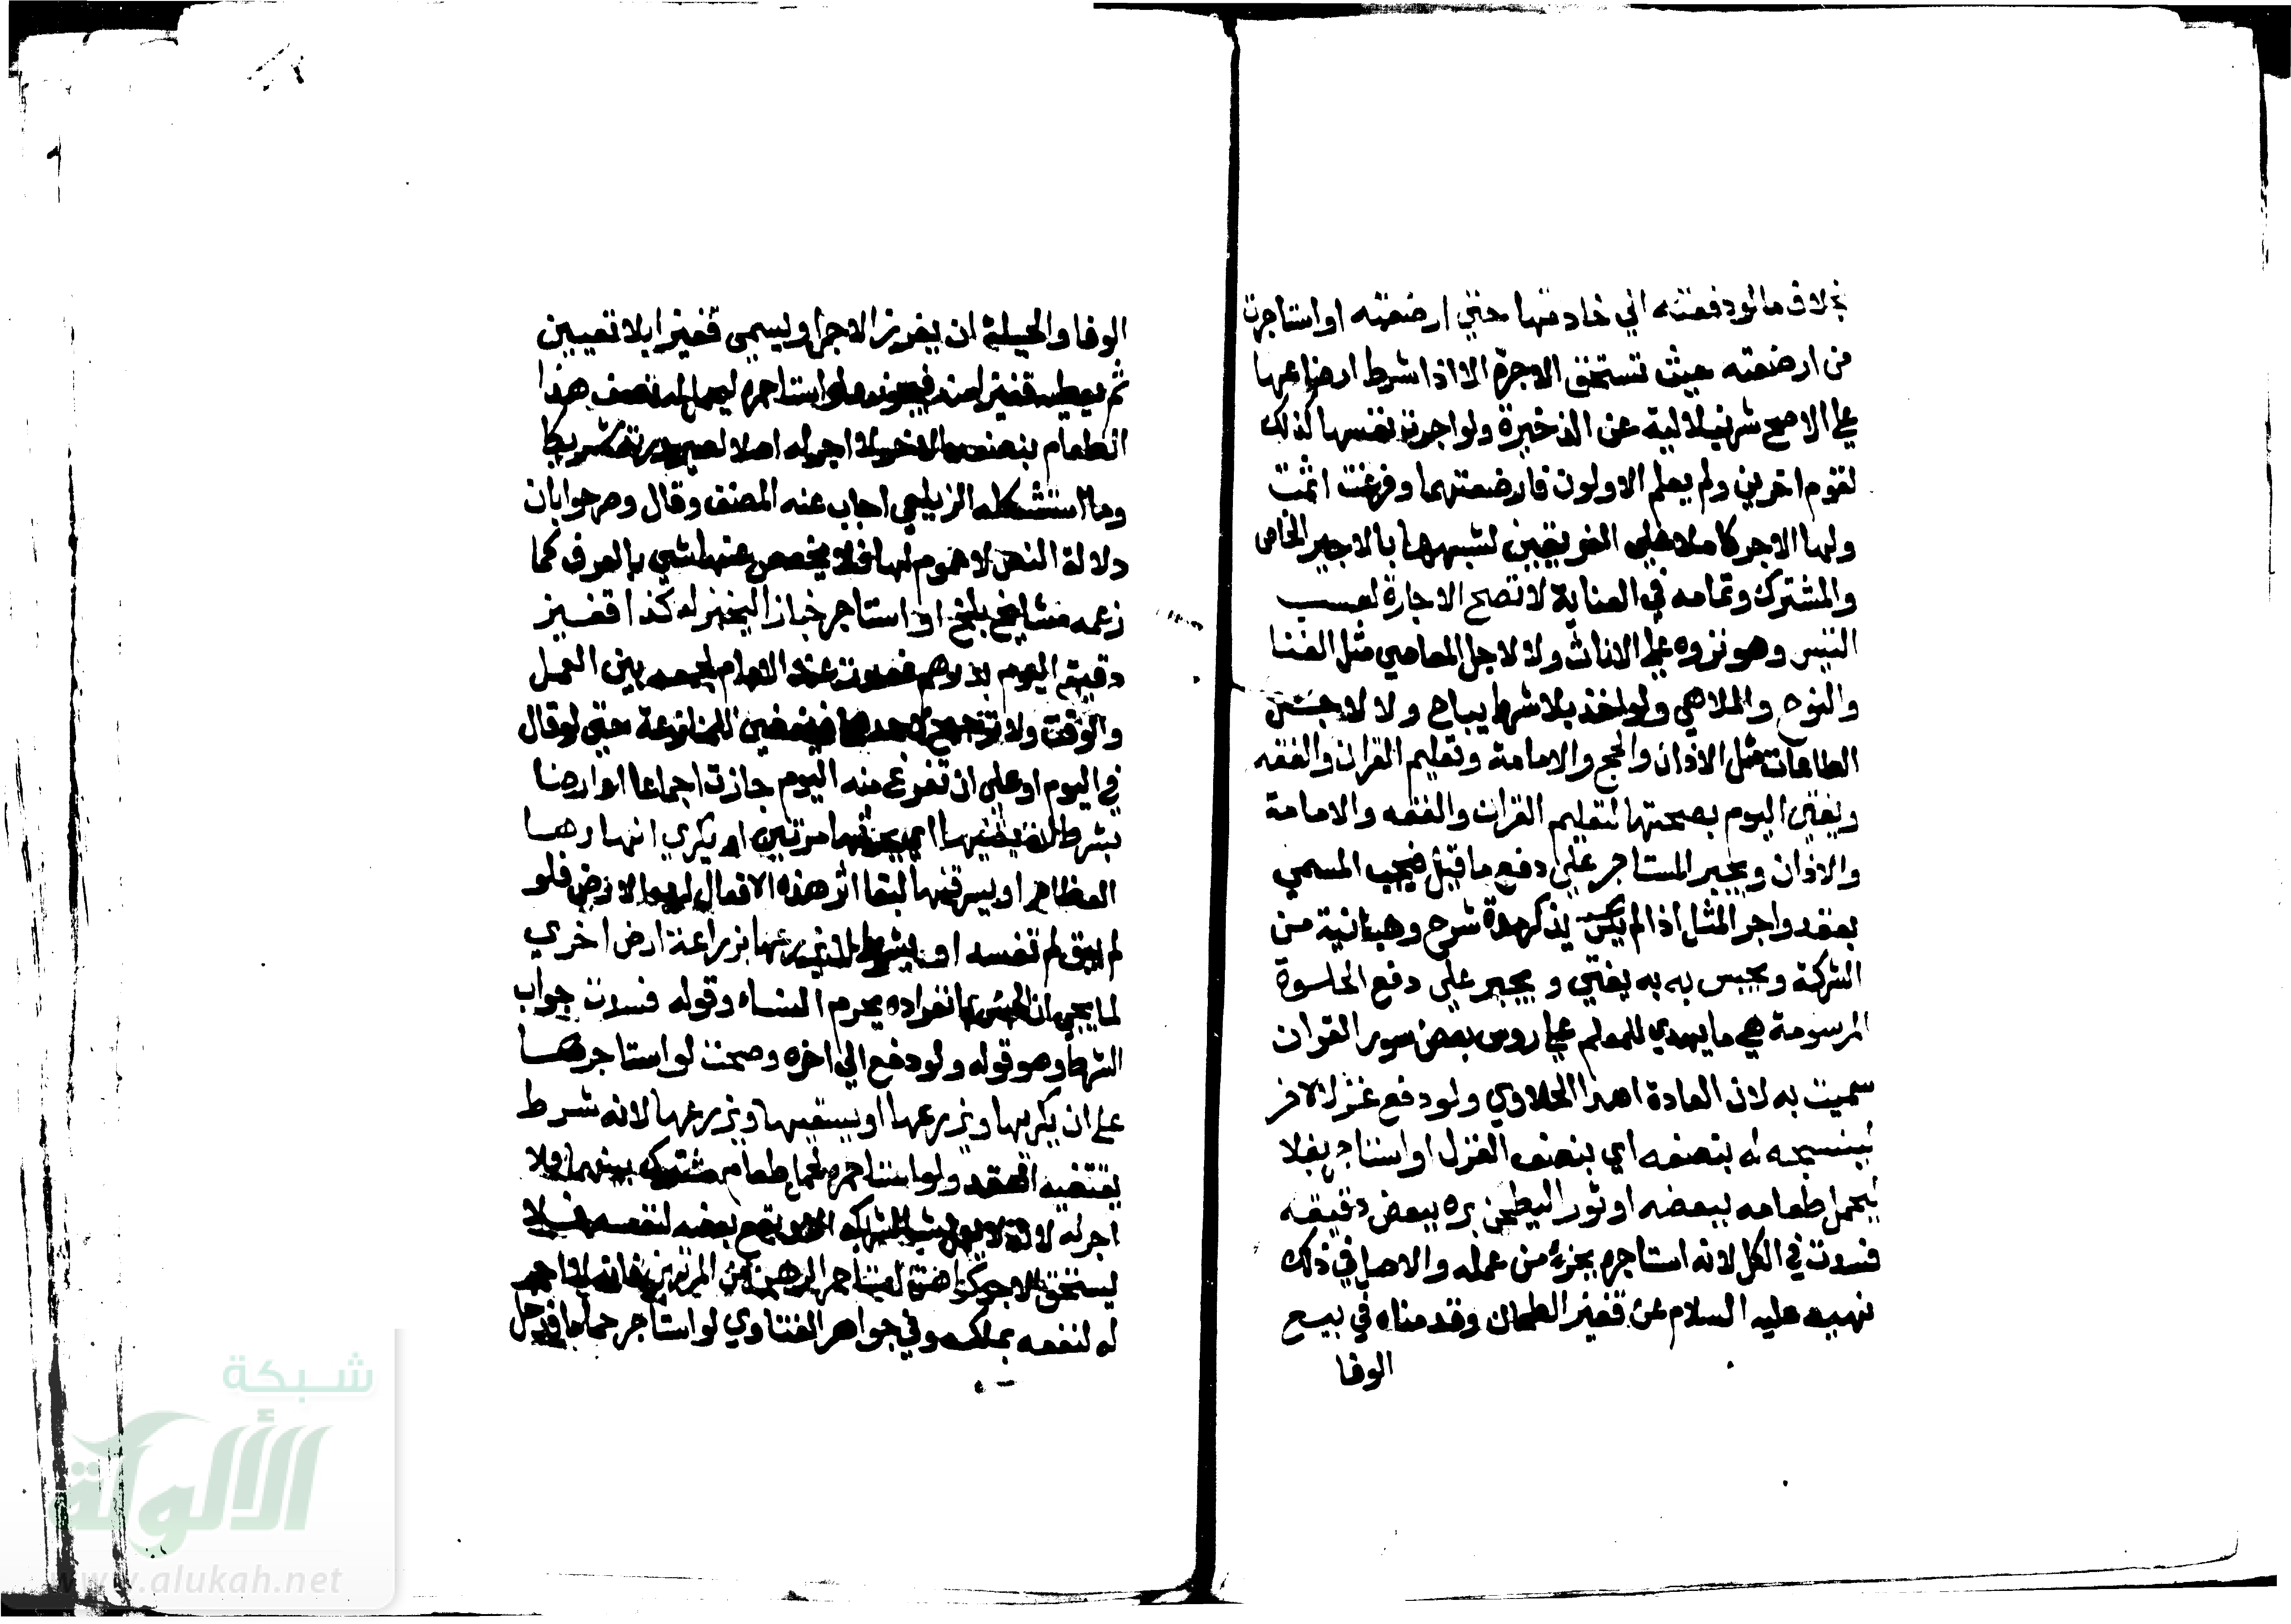 بخلاف ما لو دفعته الي خادمتها حتي ارضعته او استاجرت
من ارضعته حيث تستحق الاجرة الا اذا شرط ارضاعها
علي الاصح شرنبلالية عن الذخيرة ولو اجرت نفسها كذلك
لقوم اخرين ولم يعلم الاولون فارضعتهما وفرغت اثمت
ولها الاجر كاملا علي الفريقين لشبهها بالاجير الخاص
والمشترك وتمامه في العناية لا تصح الاجارة لعسب
التيس وهو نزوه علي الاناث ولا لاجل المعاصي مثل الغنا
والنوح والملاهي ولو اخذ بلا شرط يباح ولا لاجل
الطاعات مثل الاذان والحج والامامة وتعليم القران والفقه
ويفتي اليوم بصحتها لتعليم القران والفقه والامامة
والاذان ويجبر المستاجر علي دفع ما قبل فيجب المسمي
بعقد واجر المثل اذا لم يذكر مدة شرح وهبانية من
الشركة ويحبس به به يفتي ويجبر علي دفع الحلسوة
المرسومة هي ما يهدي للمعلم علي روس بعض سور القران
سميت به لان العادة اهدا الحلاوي ولو دفع غزلا لاخر
لينسجه له بنصفه اي بنصف الغزل او استاجر بغلا
ليحمل طعامه ببعضه او ثورا ليطحن بره ببعض دقيقه
فسدت في الكل لانه استاجره بجزء من عمله والاصل في ذلك
نهيه عليه السلام عن قفيز الطحان وقدمناه في بيع
الوفا
الوفا والحيلة ان يفرز الاجر او يسمي قفيزا بلا تعيين
ثم يعطيه قفيزا منه فيجوز ولو استاجره ليحمل له نصف هذا
الطعام بنصفه الاخر لا اجر له اصلا لصيرورته شريكا
وما استشكله الزيلعي اجاب عنه المصنف وقال وصرحوا بان
دلالة النص لا عموم لها فلا يخصص عنها شي بالعرف كما
زعمه مشايخ بلخ او استاجر خبازا ليخبز له كذا قفيز
دقيق اليوم بدرهم فسدت عند الامام لجمعه بين العمل
والوقت ولا ترجيح لاحدهما فيفضي للمنازعة حتي لو قال
في اليوم او علي ان تفرغ منه اليوم جازت اجماعا او ارضا
بشرط ان يثنيها اي يحرثها مرتين او يكري انهارها
العظام او يسرقنها لبقا اثر هذه الافعال لرب الارض فلو
لم يبق لم تفسد او بشرط ان يزرعها بزراعة ارض اخري
لما يجي ان الجنس بانفراده يحرم النساء وقوله فسدت جواب
الشرط وهو قوله ولو دفع الي اخره وصحت لو استاجرها
علي ان يكربها ويزرعها او يسقيها ويزرعها لانه شرط
يقتضيه العقد ولو استاجره لحمل طعام مشترك بينهما فلا
اجر له لانه لا يعمل شيا لشريكه الا ويقع بعضه لنفسه فلا
يستحق الاجر كراهن استاجر الرهن من المرتهن فانه لا اجر
له لنفعه بملكه وفي جواهر الفتاوي لو استاجر حماما فدخل
شبكة
الألوكة
www.alukah.net